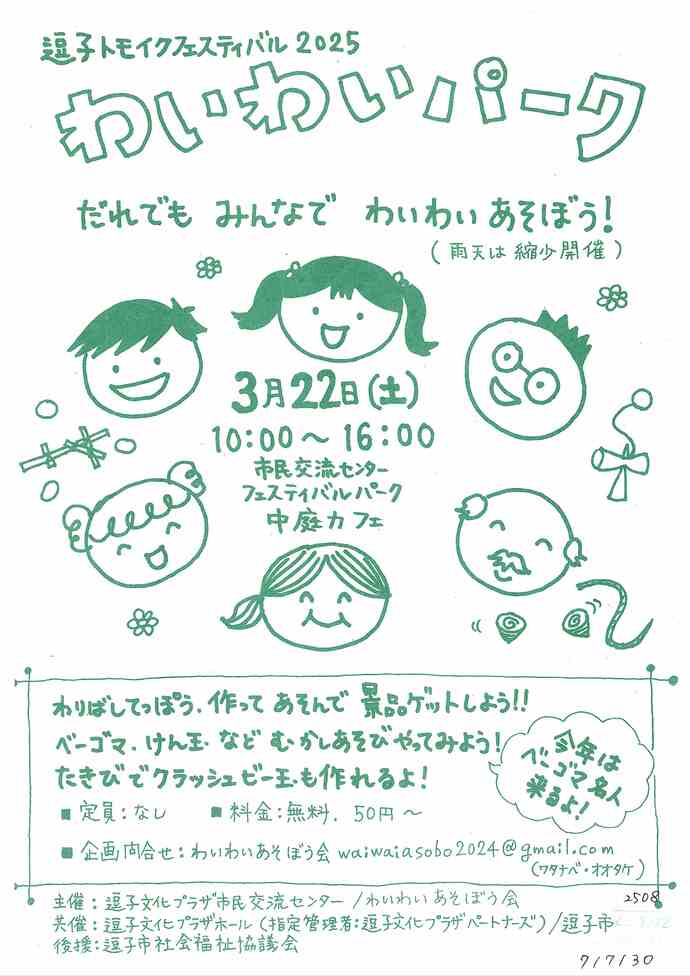 逗子トモイクフェスティバル2025
わいわいパーク
だれでも みんなで わいわい あそぼう!
(雨天は縮少開催)
3月22日(土)
10:00〜16:00
市民交流センター
フェスティバルパーク
中庭カフェ
わりばしてっぽう、作って あそんで 景品ゲットしよう!!
ベーゴマ、けん玉 など むかしあそびやってみよう!
たきびでクラッシュビー玉も作れるよ!
今年は
ベーゴマ名人
来るよ!
■定員:なし ■料金:無料、50円〜
■企画問合せ:わいわいあそぼう会 waiwaiasobo2024@gmail.com
(ワタナベ・オオタケ)
主催:逗子文化プラザ市民交流センター/わいわいあそぼう会
共催:逗子文化プラザホール(指定管理者:逗子文化プラザパートナーズ)/逗子市
後援:逗子市社会福祉協議会
2508
7/7/30